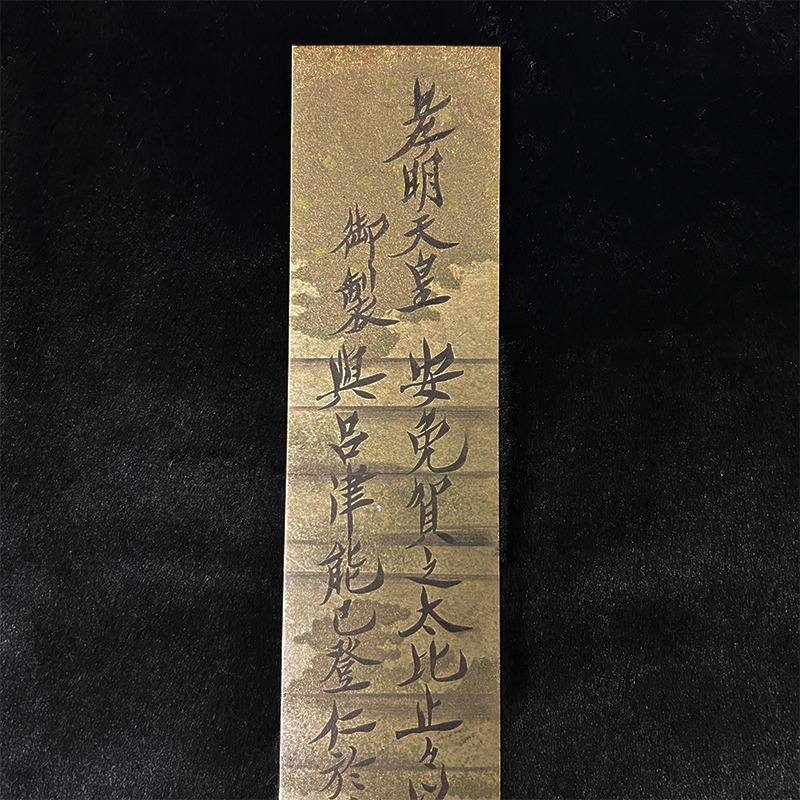 孝明天皇
御製
安免賀之太比止々以
與呂津能己登仁於